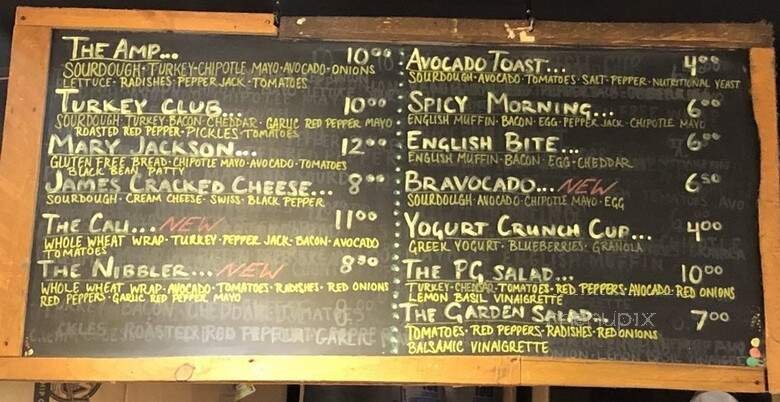 THE AMP... 10⁰⁰
SOURDOUGH · TURKEY · CHIPOTLE MAYO · AVOCADO · ONIONS
LETTUCE · RADISHES · PEPPER JACK · TOMATOES
TURKEY CLUB... 10⁰⁰
SOURDOUGH · TURKEY · BACON · CHEDDAR · GARLIC RED PEPPER MAYO
ROASTED RED PEPPER · PICKLES · TOMATOES
MARY JACKSON... 12⁰⁰
GLUTEN FREE BREAD · CHIPOTLE MAYO · AVOCADO · TOMATOES
BLACK BEAN PATTY
JAMES CRACKED CHEESE... 8⁰⁰
SOURDOUGH · CREAM CHEESE · SWISS · BLACK PEPPER
THE CALI... NEW 11⁰⁰
WHOLE WHEAT WRAP · TURKEY · PEPPER JACK · BACON · AVOCADO
TOMATOES
THE NIBBLER... NEW 8⁵⁰
WHOLE WHEAT WRAP · AVOCADO · TOMATOES · RADISHES · RED ONIONS
RED PEPPERS · GARLIC RED PEPPER MAYO
AVOCADO TOAST... 4⁰⁰
SOURDOUGH · AVOCADO · TOMATOES · SALT · PEPPER · NUTRITIONAL YEAST
SPICY MORNING... 6⁰⁰
ENGLISH MUFFIN · BACON · EGG · PEPPER JACK · CHIPOTLE MAYO
ENGLISH BITE... 6⁰⁰
ENGLISH MUFFIN · BACON · EGG · CHEDDAR
BRAVOCADO... NEW 6⁵⁰
SOURDOUGH · AVOCADO · CHIPOTLE MAYO · EGG
YOGURT CRUNCH CUP... 4⁰⁰
GREEK YOGURT · BLUEBERRIES · GRANOLA
THE PG SALAD... 10⁰⁰
TURKEY · CHEDDAR · TOMATOES · RED PEPPERS · AVOCADO · RED ONIONS
LEMON BASIL VINAIGRETTE
THE GARDEN SALAD... 7⁰⁰
TOMATOES · RED PEPPERS · RADISHES · RED ONIONS
BALSAMIC VINAIGRETTE